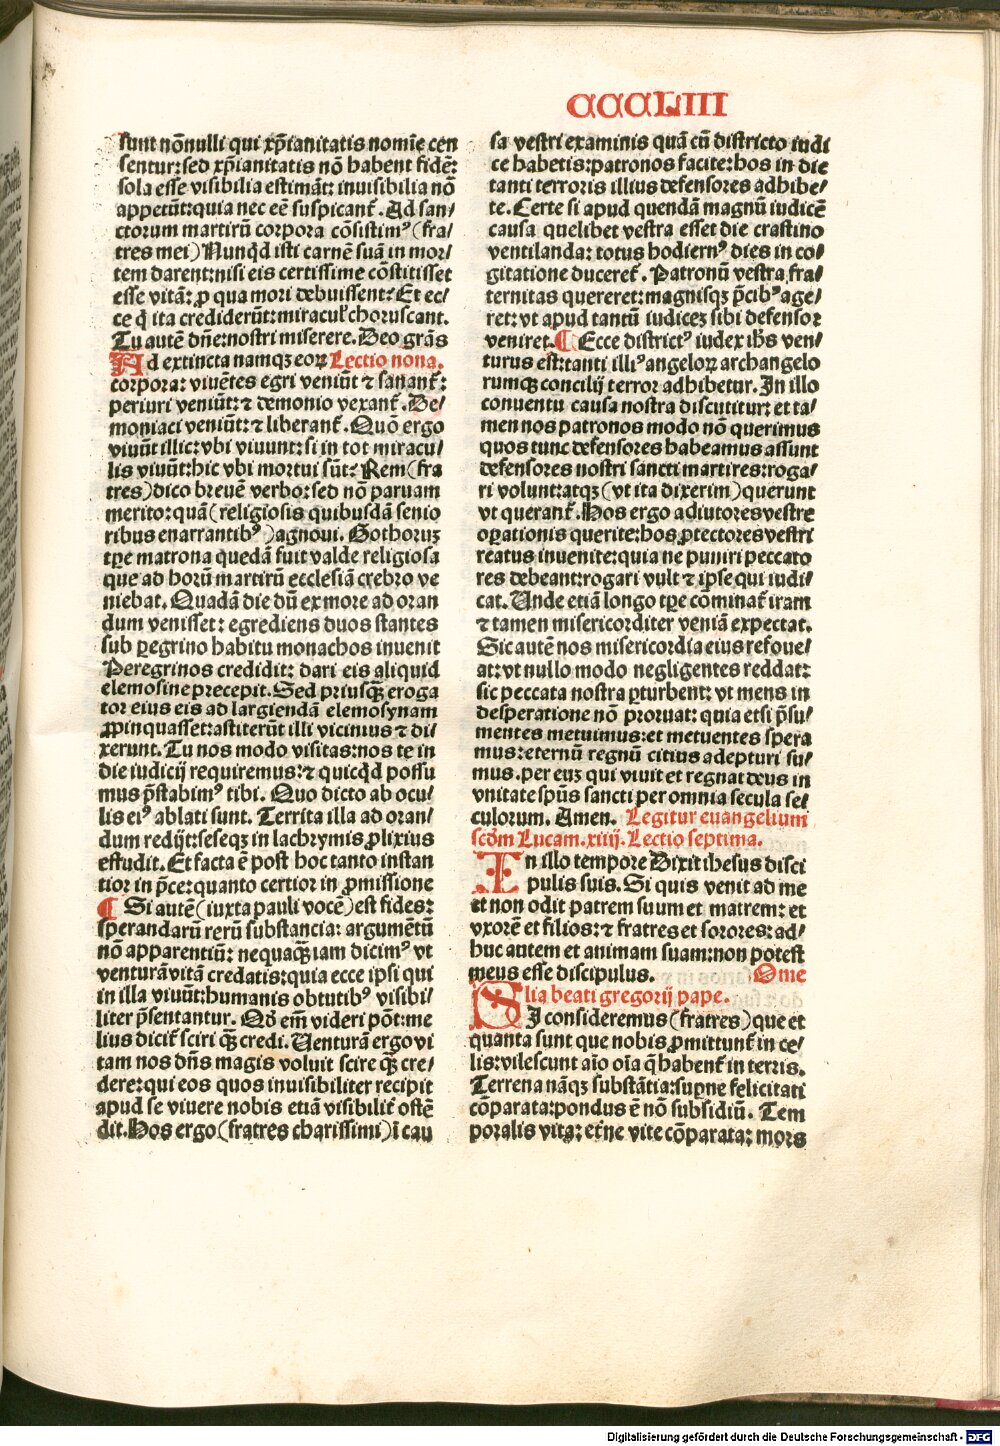 CCCLIII
sunt nōnulli qui xp̄ianitatis nomīe cen
sentur: sed xp̄ianitatis nō habent fidē:
sola esse visibilia estimāt: inuisibilia nō
appetūt: quia nec eē suspicant᷑. Ad san/
ctorum martirū corpora cōsistimꝰ (fra/
tres mei) Nunqͥd isti carnē suā in mor/
tem darent: nisi eis certissime cōstitisset
esse vitā: ꝓ qua mori debuissent? Et ec/
ce q̇ ita crediderūt: miracul' choruscant.
Tu autē dn̄e: nostri miserere. Deo grās
Ad extincta namqꝫ eoꝝ Lectio nona.
corpora: viuētes egri veniūt ⁊ sanant᷑:
periuri veniūt: ⁊ demonio vexant᷑. De/
moniaci veniūt: ⁊ liberant᷑. Quō ergo
viuūt illic: vbi viuunt: si in tot miracu/
lis viuūt: hic vbi mortui sūt? Rem (fra
tres) dico breuē verbo: sed nō paruam
merito: quā (religiosis quibusdā senio
ribus enarrantibꝰ) agnoui. Gothoruꝫ
tꝑe matrona quedā fuit valde religiosa
que ad horū martirū ecclesiā crebro ve
niebat. Quadā die dū ex more ad oran
dum venisset: egrediens duos stantes
sub ꝑegrino habitu monachos inuenit
Peregrinos credidit: dari eis aliquid
elemosine precepit. Sed priusꝙ̄ eroga
tor eius eis ad largiendā elemosynam
ꝓpinquasset: astiterūt illi vicinius ⁊ di/
xerunt. Tu nos modo visitas: nos te in
die iudicij requiremus: ⁊ quicqͥd possu
mus p̄stabimꝰ tibi. Quo dicto ab ocu/
lis eiꝰ ablati sunt. Territa illa ad oran/
dum redijt: seseqꝫ in lachrymis ꝓlixius
effudit. Et facta ē post hoc tanto instan
tior in p̄ce: quanto certior in ꝓmissione
¶ Si autē (iuxta pauli vocē) est fides:
sperandarū rerū substancia: argumētū
nō apparentiū: nequaꝙ̄ iam dicimꝰ vt
venturā vitā credatis: quia ecce ipsi qui
in illa viuūt: humanis obtutibꝰ visibi/
liter p̄sentantur. Qḋ em̄ videri pōt: me
lius dicit᷑ sciri ꝙ̄ credi. Venturā ergo vi
tam nos dn̄s magis voluit scire ꝙ̄ cre/
dere: qui eos quos inuisibiliter recipit
apud se viuere nobis etiā visibilit᷑ ostē
dit. Hos ergo (fratres charissimi) ī cau
sa vestri examinis quā cū districto iudi
ce habetis: patronos facite: hos in die
tanti terroris illius defensores adhibe/
te. Certe si apud quendā magnū iudicē
causa quelibet vestra esset die crastino
ventilanda: totus hodiernꝰ dies in co/
gitatione duceret᷑. Patronū vestra fra/
ternitas quereret: magnisqꝫ p̄cibꝰ age/
ret: vt apud tantū iudiceꝫ sibi defensor
veniret. ¶ Ecce districtꝰ iudex ih̄s ven/
turus est: tanti illiꝰ angeloꝝ archangelo
rumqꝫ concilij terror adhibetur. In illo
conuentu causa nostra discutitur: et ta/
men nos patronos modo nō querimus
quos tunc defensores habeamus assunt
defensores nostri sancti martires: roga/
ri volunt: atqꝫ (vt ita dixerim) querunt
vt querant᷑. Hos ergo adiutores vestre
oꝑationis querite: hos ꝓtectores vestri
reatus inuenite: quia ne puniri peccato
res debeant: rogari vult ⁊ ipse qui iudi/
cat. Unde etiā longo tꝑe cōminat᷑ iram
⁊ tamen misericorditer veniā expectat.
Sic autē nos misericordia eius refoue/
at: vt nullo modo negligentes reddat:
sic peccata nostra ꝑturbent: vt mens in
desperatione nō proruat: quia etsi p̄su/
mentes metuimus: et metuentes spera
mus: eternū regnū citius adepturi su/
mus. per euꝫ qui viuit et regnat deus in
vnitate sp̄us sancti per omnia secula se/
culorum. Amen. Legitur euangelium
scd̄m Lucam. xiiij. Lectio septima.
In illo tempore Dixit ihesus disci
pulis suis. Si quis venit ad me
et non odit patrem suum et matrem: et
vxorē et filios: ⁊ fratres et sorores: ad/
huc autem et animam suam: non potest
meus esse discipulus. Ome
lia beati gregorij pape.
SI consideremus (fratres) que et
quanta sunt que nobis ꝓmittunt᷑ in ce/
lis: vilescunt aīo oīa q̄ habent᷑ in terris.
Terrena nāqꝫ substātia: suꝑne felicitati
cōparata: pondus ē nō subsidiū. Tem
poralis vita: et̄ne vite cōparata: mors
Digitalisierung gefördert durch die Deutsche Forschungsgemeinschaft - DFG